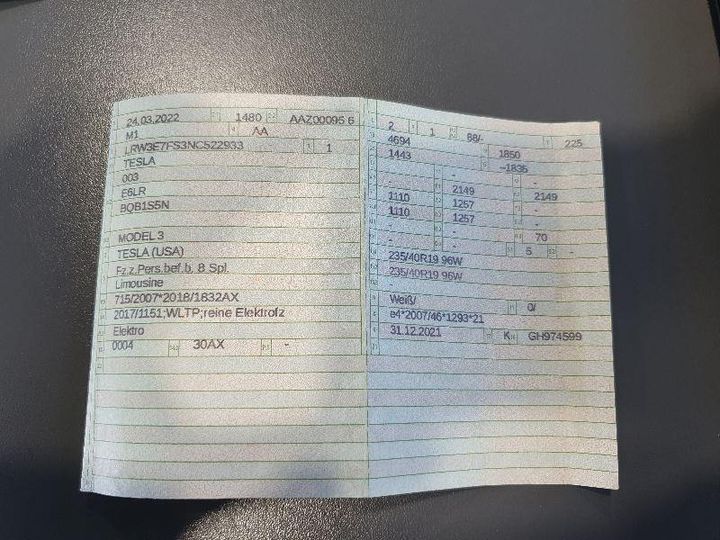 24.03.2022 1480 AAZ00095 6
M1 AA
LRW3E7FS3NC522933 1
TESLA
003
E6LR
BQB1S5N
MODEL 3
TESLA (USA)
Fz.z.Pers.bef.b. 8 Spl.
Limousine
715/2007*2018/1832AX
2017/1151;WLTP;reine Elektrofz
Elektro
0004 30AX -
2 1 88/- 225
4694 1850
1443 –1835
- - -
- 2149 2149
1110 1257 -
1110 1257 -
- - 70
- - 5 -
235/40R19 96W
235/40R19 96W
Weiß/ 0/
e4*2007/46*1293*21
31.12.2021 K GH974599